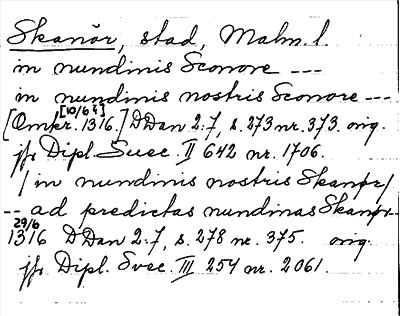 Skanör, stad, Malm. l.
in nundinis Sconore ---
in nundinis nostris Sconore ---
[10/6
[Omkr. 1316.] DDan 2:7, s. 273 nr. 373. orig.
jfr Dipl. Suec. II 642 nr. 1706.
/in nundinis nostris Skanør/
-- ad predictas nundinas Skanør--
29/6
1316 DDan 2:7, s. 278 nr. 375. orig.
jfr Dipl. Svec. III 254 nr. 2061.